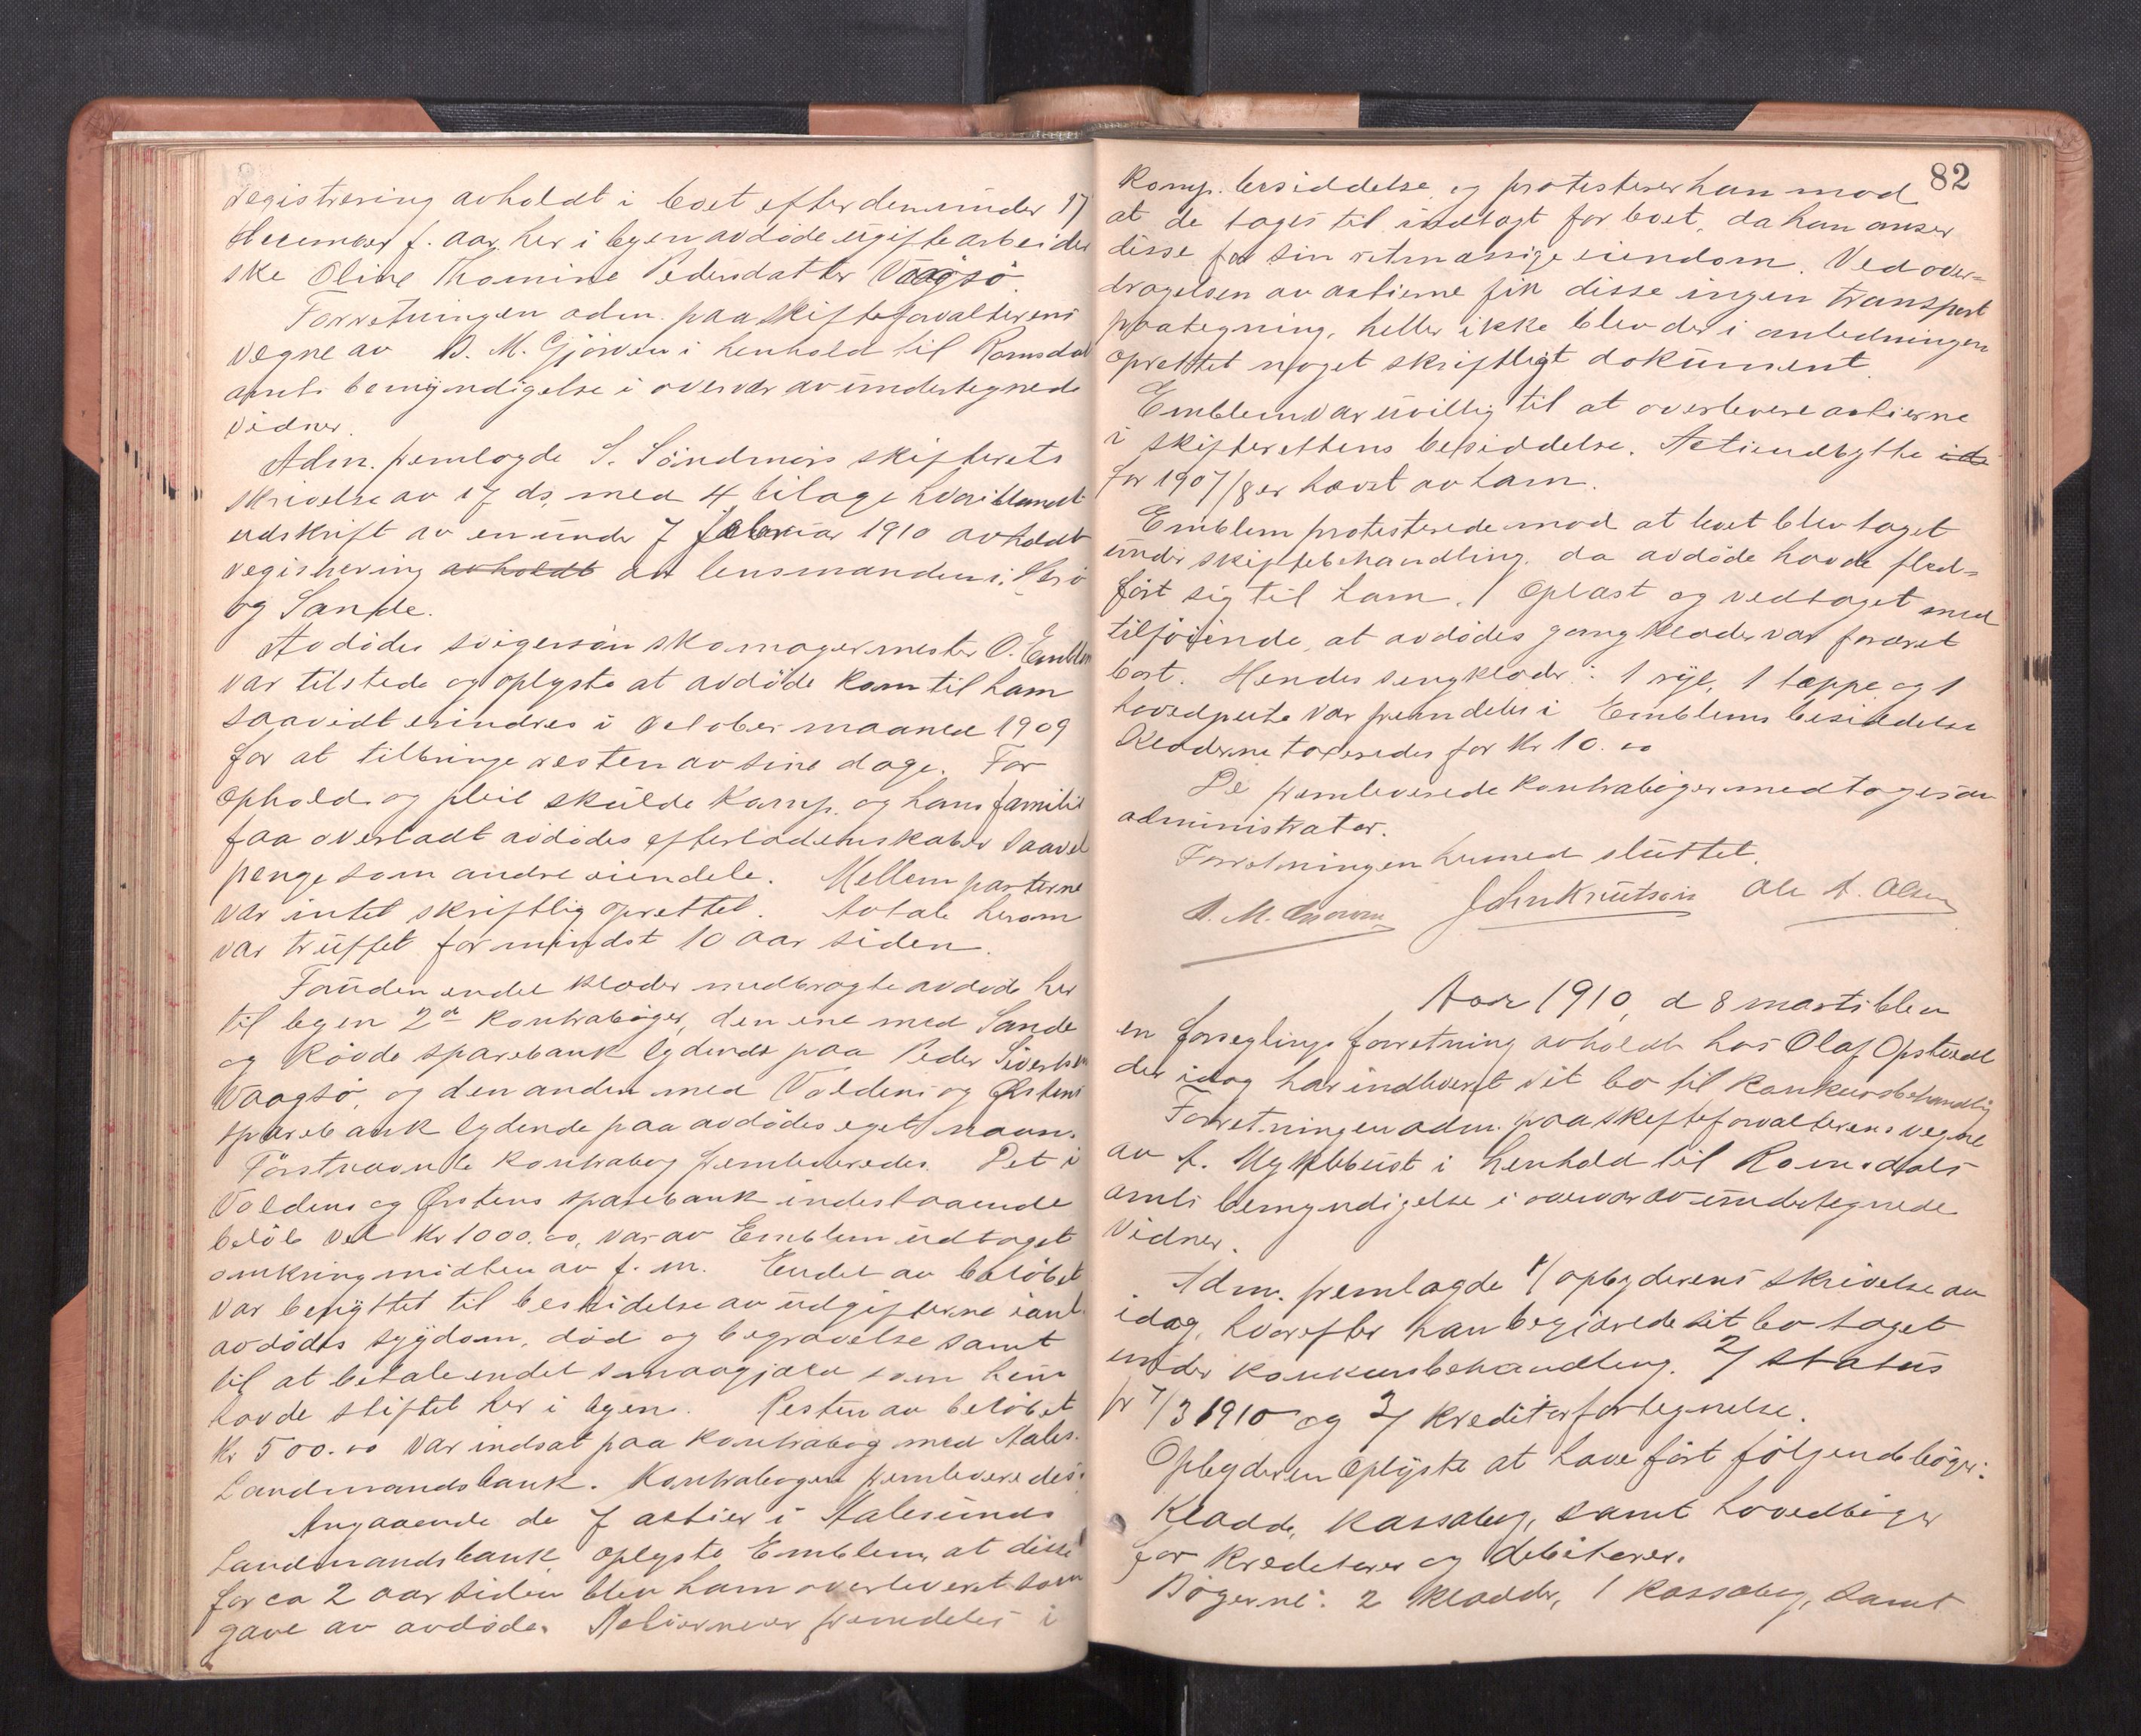 registrering avholdt i boet efter den under 17
December f. aar her i byen avdöde ugifte arbeider
ske Oline Thomine Pedersdatter Vaagsö.
Forretningen adm. paa skifteforvalterens
vegne av B. M. Gjörven i henhold til Romsdal
amts bemyndigelse i overvær av undertegnede
vidner.
Adm. fremlagde S. Söndmörs skifterets
skrivelse av 17 ds. med 4 bilage hvoriblandt
udskrift av en under 7 februar 1910 avholdt
registrering avholdt av lensmanden i Herö
og Sande.
Avdödes svigersön skomagermester O. Emblem
var tilstede og oplyste at avdöde kom til ham
saavidt erindres i October maaned 1909
for at tilbringe resten av sine dage. For
ophold og pleie skulde komp. og hans familie
faa overladt avdödes efterladenskaber saavel
penge som andre eiendele. Mellem parterne
var intet skriftlig oprettet. Avtale herom
var truffet for mindst 10 aar siden.
Foruden endel klæder medbragte avdöde her
til byen 2de kontraböger, den ene med Sande
og Rövde sparebank lydende paa Peder Sivertsen
Vaagsö, og den anden med Voldens og Örstens
sparebank lydende paa avdödes eget navn.
Förstnævnte kontrabog fremleveredes. Det i
Voldens og Örstens sparebank indestaaende
belöb vel Kr 1000.00, var av Emblem udtaget
omkring midten av f. m. Endel av belöbet
var benyttet til bestridelse av udgifterne i anl.
avdödes sygdom, död og begravelse samt
til at betale endel smaagjæld som hun
havde stiftet her i byen. Resten av belöbet
Kr 500.00 var indsat paa kontrabog med Aales.
Landmandsbank. Kontrabogen fremleveredes.
Angaaende de 7 aktier i Aalesunds
Landmandsbank oplyste Emblem, at disse
for ca 2 aar siden blev ham overleveret som
gave av avdöde. Aktierne er fremdeles i
82
komp. besiddelse og protesterer han mod
at de tages til indtægt for boet, da han anser
disse for sin retmæssige eiendom. Ved over=
dragelsen av aktierne fik disse ingen transport
paategning, heller ikke blev der i anledningen
oprettet noget skriftligt dokument.
Emblem var uvillig til at overlevere aktierne
i skifterettens besiddelse. Actieudbytte ide
for 1907/8 er hævet av ham.
Emblem protesterede mod at boet blev taget
under skiftebehandling, da avdöde havde flæd=
fört sig til ham. Oplæst og vedtaget med
tilföiende, at avdödes gangklæder var foræret
bort. Hendes sengklæder: 1 rye, 1 tæppe og 1
hovedpute var fremdeles i Emblems besiddelse
Klæderne taxeredes for Kr 10.00
De fremleverede kontraböger medtoges av
administrator.
Forretningen hermed sluttet.
B. M. Gjörven John Knutsen Ole A. Olsen
Aar 1910, d 8 marts blev
en forseglingsforretning avholdt hos Olaf Opstedal
der idag har indleveret sit bo til konkursbehandling
Forretningen adm. paa skifteforvalterens vegne
av A. Myklebust i henhold til Romsdals
amts bemyndigelse i overvær av undertegnede
vidner.
Adm. fremlagde 1/ opbyderens skrivelse av
idag, hvorefter han begjærede sit bo taget
under konkursbehandling. 2/ status
pr 7/3 1910 og 3/ kreditorfortegnelse.
Opbyderen oplyste at have fört fölgende böger:
Kladde, kassabog, samt hovedböger
for kreditorer og debitorer.
Bögerne: 2 kladder, 1 kassabog, samt